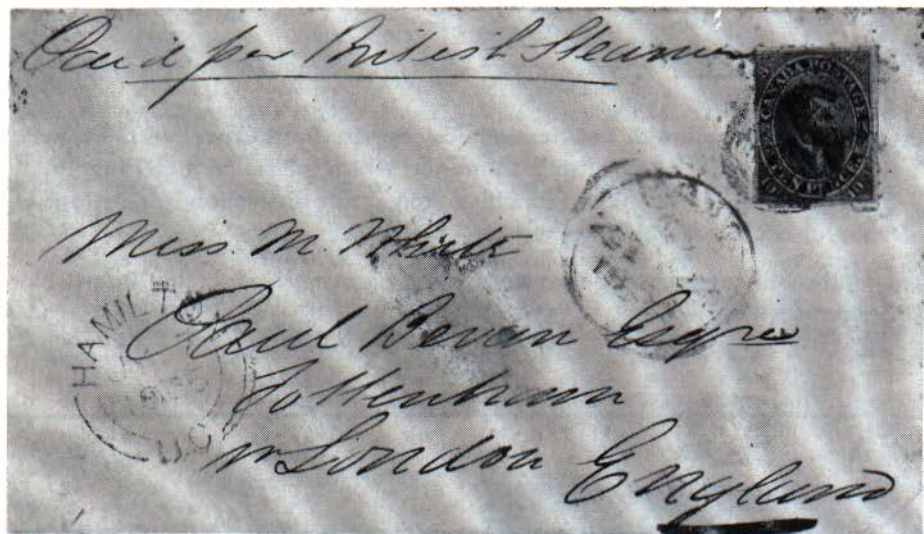 Paid per British Steamer
CANADA POSTAGE
TEN PENCE
Miss. M. White
Paul Bevan Esqre
Tottenham
nr London England
HAMILTON
U.C.